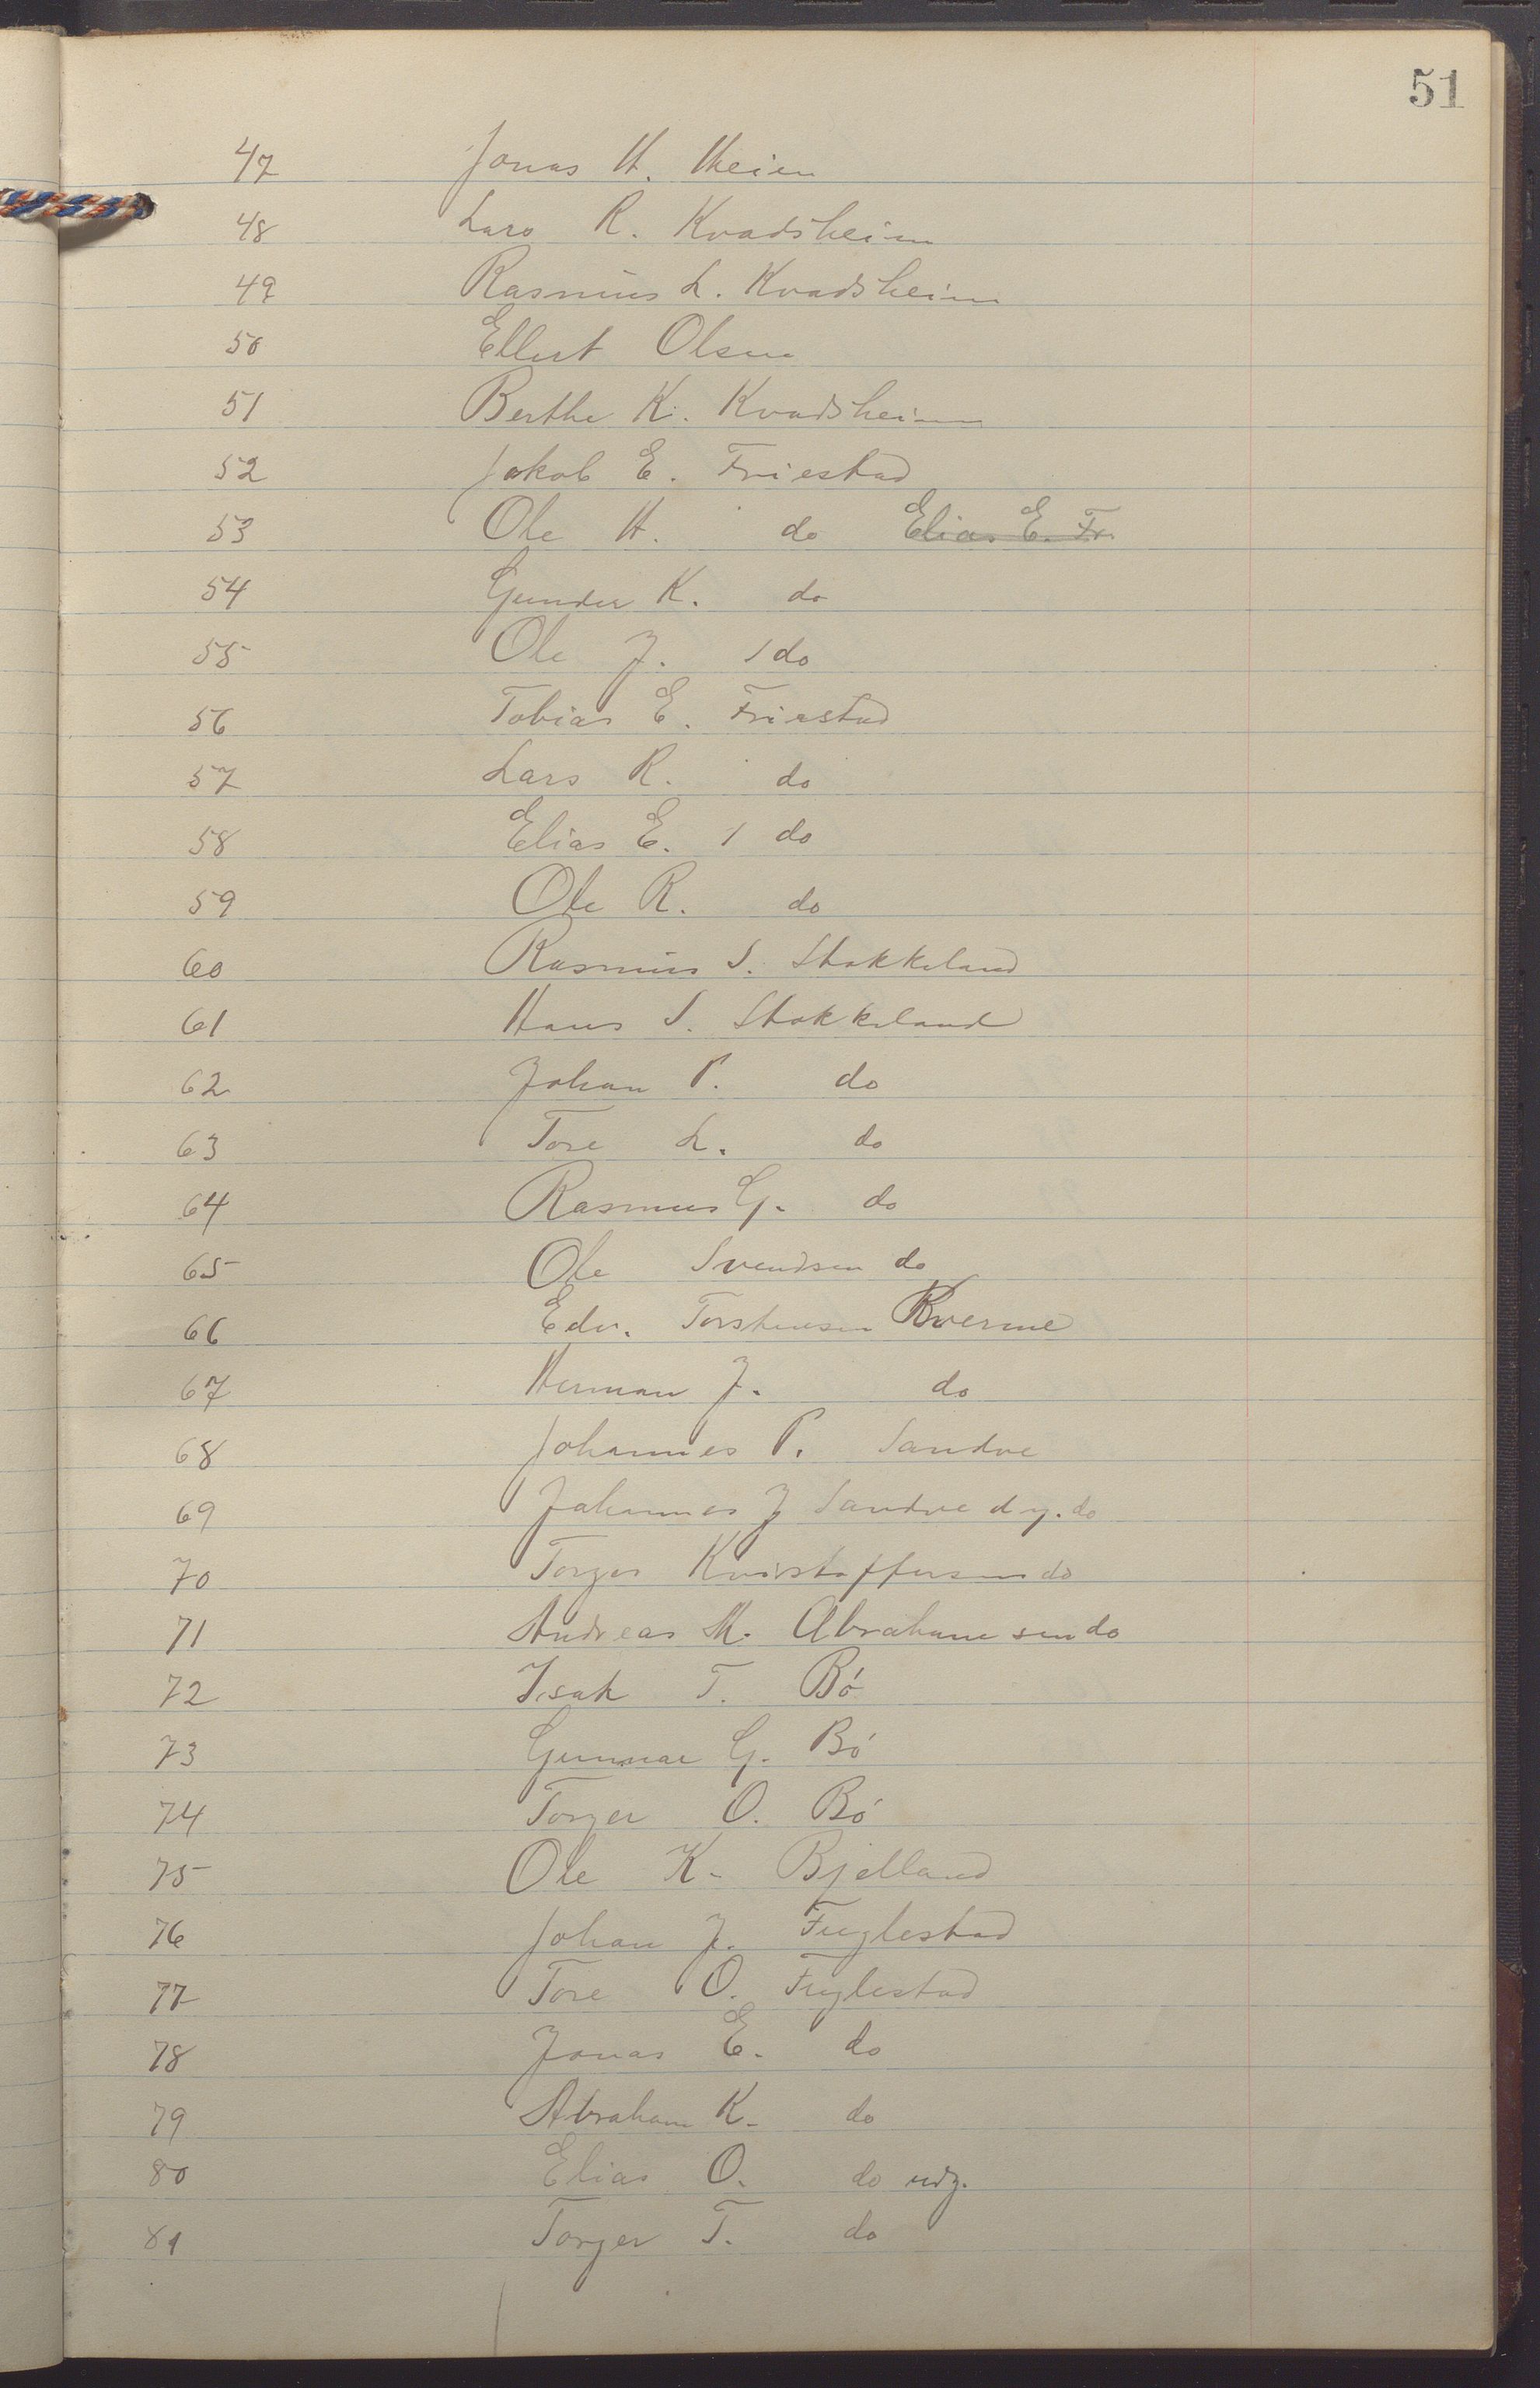 51
47 Jonas H. Heien
48 Lars R. Kvadsheim
49 Rasmus L. Kvadsheim
50 Ellert Olsen
51 Berthe K. Kvadsheim
52 Jakob E. Friestad
53 Ole H. do Elias E. Fr.
54 Gunder K. do
55 Ole J. / do
56 Tobias E. Friestad
57 Lars R. do
58 Elias E. / do
59 Ole R. do
60 Rasmus S. Stokkeland
61 Hans S. Stokkeland
62 Johan P. do
63 Tore L. do
64 Rasmus G. do
65 Ole Svendsen do
66 Edv. Torstensen Kverme
67 Herman J. do
68 Johannes P. Sandve
69 Johannes J Sandve d y. do
70 Torger Kristoffersen do
71 Andreas M. Abrahamsen do
72 Isak T. Bó
73 Gunnar G. Bó
74 Torger O. Bó
75 Ole K. Bjelland
76 Johan J. Fuglestad
77 Tore O. Fuglestad
78 Jonas E. do
79 Abraham K. do
80 Elias O. do udg.
81 Torger T. do